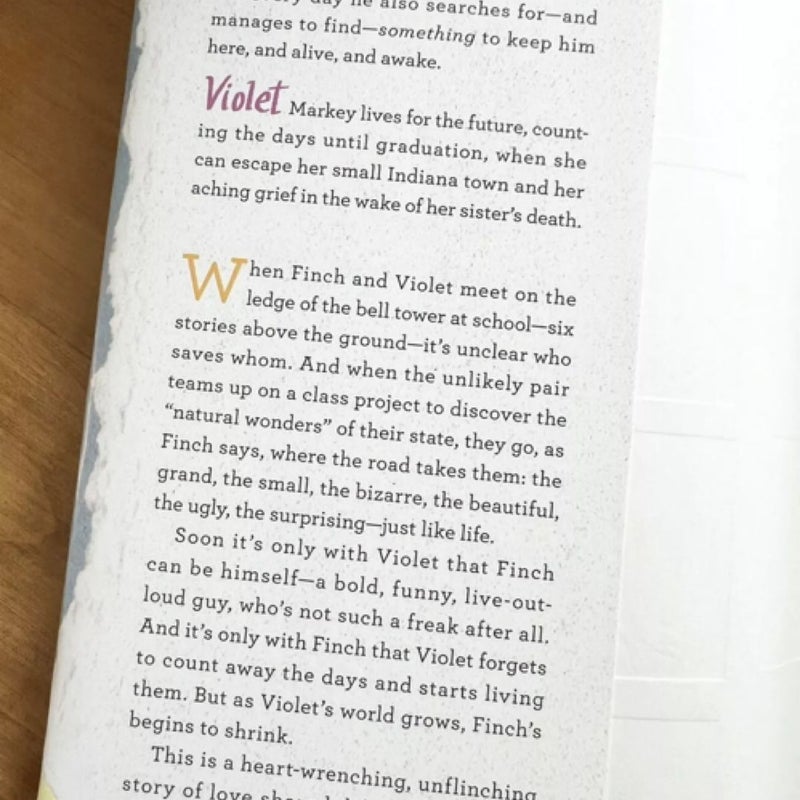 day he also searches for—and
manages to find—something to keep him
here, and alive, and awake.
Violet Markey lives for the future, count-
ing the days until graduation, when she
can escape her small Indiana town and her
aching grief in the wake of her sister's death.
When Finch and Violet meet on the
ledge of the bell tower at school—six
stories above the ground—it's unclear who
saves whom. And when the unlikely pair
teams up on a class project to discover the
“natural wonders” of their state, they go, as
Finch says, where the road takes them: the
grand, the small, the bizarre, the beautiful,
the ugly, the surprising—just like life.
Soon it's only with Violet that Finch
can be himself—a bold, funny, live-out-
loud guy, who's not such a freak after all.
And it's only with Finch that Violet forgets
to count away the days and starts living
them. But as Violet's world grows, Finch's
begins to shrink.
This is a heart-wrenching, unflinching
story of love